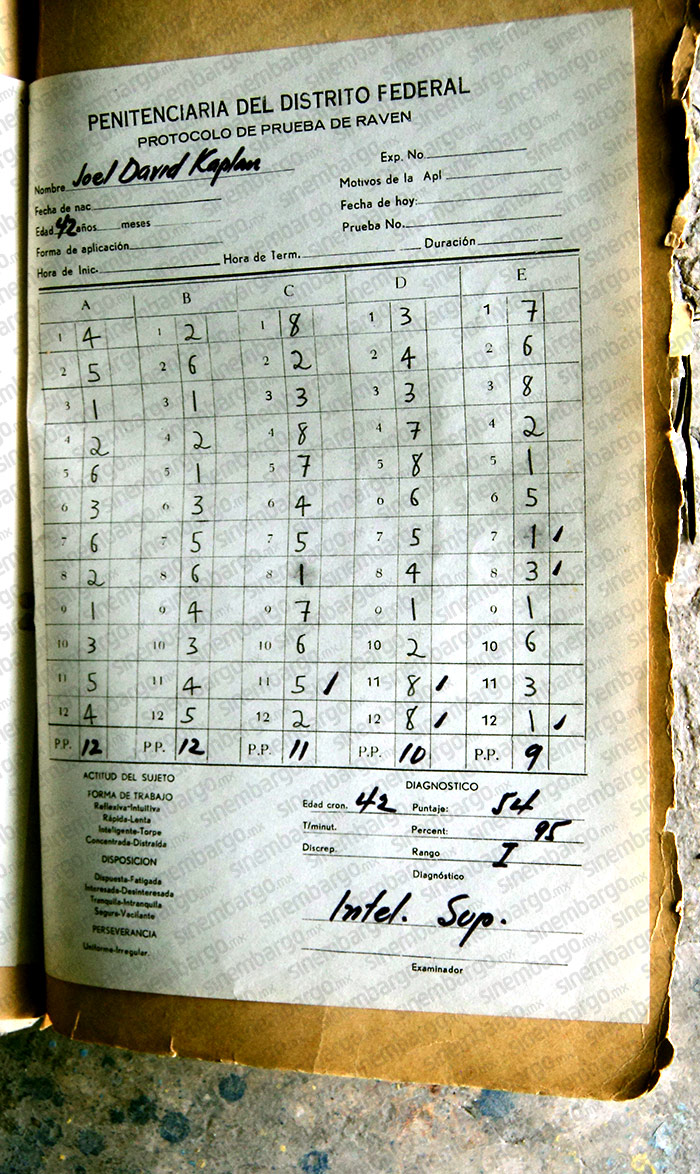 PENITENCIARIA DEL DISTRITO FEDERAL
PROTOCOLO DE PRUEBA DE RAVEN
Nombre Joel David Kaplan Exp. No.
Fecha de nac. Motivos de la Apl
Edad 42 años meses Fecha de hoy:
Forma de aplicación Prueba No.
Hora de Inic. Hora de Term. Duración
A B C D E
1 4 1 2 1 8 1 3 1 7
2 5 2 6 2 2 2 4 2 6
3 1 3 1 3 3 3 3 3 8
4 2 4 2 4 8 4 7 4 2
5 6 5 1 5 7 5 8 5 1
6 3 6 3 6 4 6 6 6 5
7 6 7 5 7 5 7 5 7 1 /
8 2 8 6 8 1 8 4 8 3 /
9 1 9 4 9 7 9 1 9 1
10 3 10 3 10 6 10 2 10 6
11 5 11 4 11 5 / 11 8 / 11 3
12 4 12 5 12 2 12 8 / 12 1 /
P.P. 12 P.P. 12 P.P. 11 P.P. 10 P.P. 9
ACTITUD DEL SUJETO
FORMA DE TRABAJO
Reflexiva-Intuitiva
Rápida-Lenta
Inteligente-Torpe
Concentrada-Distraída
DISPOSICION
Dispuesta-Fatigada
Interesada-Desinteresada
Tranquila-Intranquila
Segura-Vacilante
PERSEVERANCIA
Uniforme-Irregular.
DIAGNOSTICO
Edad cron. 42 Puntaje: 54
T/minut. Percent: 95
Discrep. Rango I
Diagnóstico
Intel. Sup.
Examinador
sinembargo.mx